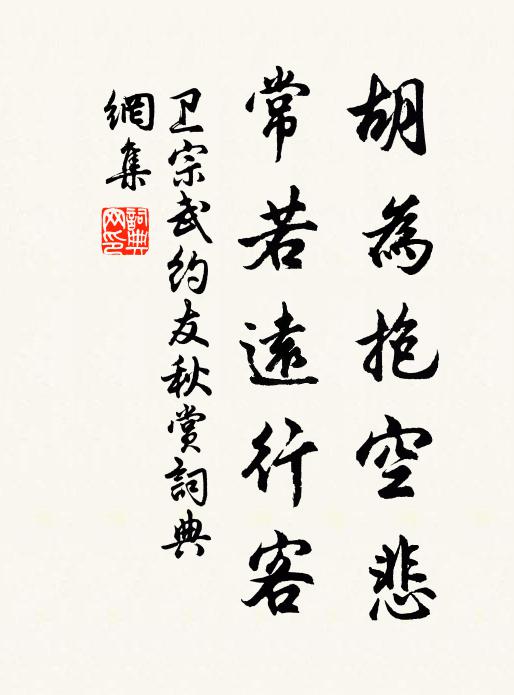 胡為抱空悲
常若遠行客
卫宗武約友秋賞詞典
網集
詞典网印